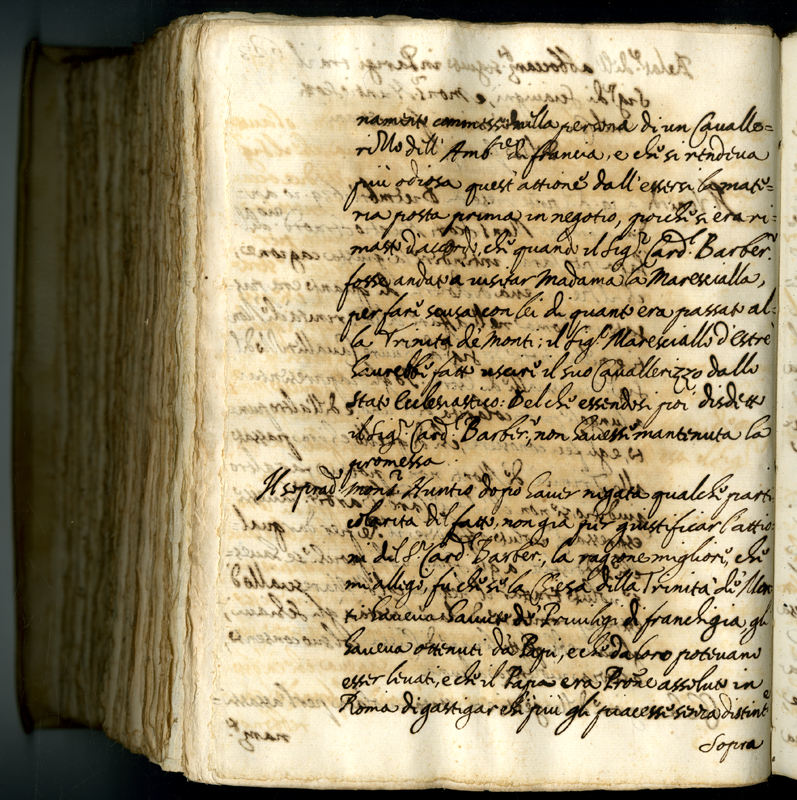 namente commessa nella persona di un Cavalle=
rizzo dell' Amb.re di francia, e che si rendeva
più odiosa quest'attione dall'essersi la mate=
ria posta prima in negotio, poiche si era ri=
masto d'accordo, che quando il Sig.r Card.l Barber.
fosse andato a visitar Madama la Marescialla,
per fare scusa con lei di quanto era passato al=
la Trinità de Monti; il Sig.r Maresciallo d'Estrè
haurebbe fatto uscire il suo Cavallerizzo dallo
stato Ecclesiastico: Del che essendosi poi disdetto
il Sig.r Card.l Barber., non havesse mantenuta la
promessa.
Il soprad.o Mons.r Nuntio dopo haver negata qualche parti
colarita del fatto, non già per giustificar l'attio=
ne del S.r Card.l Barber., la ragione migliore, che
mi allegò, fù che se la Chiesa della Trinità de Mon
ti haveva havuto de Privilegi di franchigia, gli
haveva ottenuti da Papi, e che da loro potevano
esser levati, e che il Papa era Prone assoluto in
Roma di gastigar chi più gli piacesse senza distint.e
Sopra
nam.te